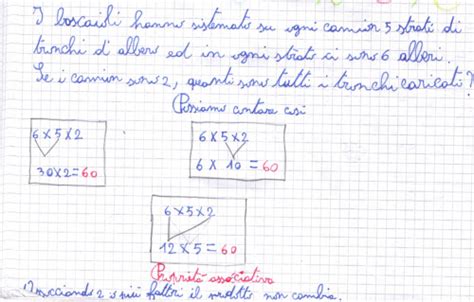 I boscaioli hanno sistemato su ogni camion 5 strati di
tronchi di albero ed in ogni strato ci sono 6 alberi.
Se i camion sono 2, quanti sono tutti i tronchi caricati?
Possiamo contare così
6 x 5 x 2
30 x 2 = 60
6 x 5 x 2
6 x 10 = 60
6 x 5 x 2
12 x 5 = 60
Proprietà associativa
Associando 2 o più fattori il prodotto non cambia.